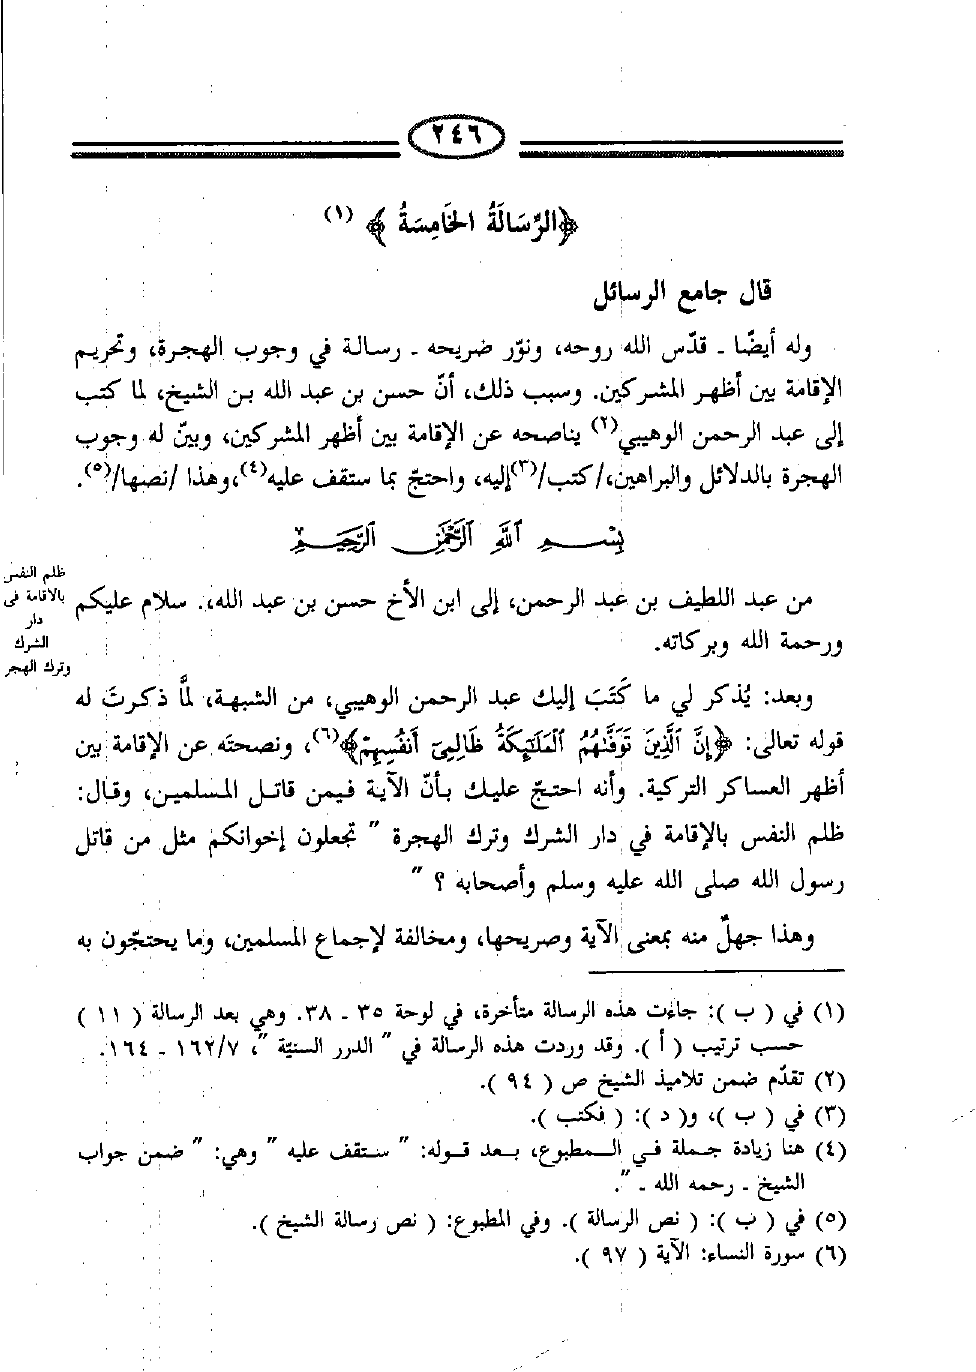 ٢٤٦
﴿الرِّسَالَةُ الخَامِسَةُ﴾ (١)
قال جامع الرسائل
وله أيضًا ـ قدّس الله روحه، ونوّر ضريحه ـ رسالة في وجوب الهجرة، وتحريم
الإقامة بين أظهر المشركين. وسبب ذلك، أنّ حسن بن عبد الله بن الشيخ، لما كتب
إلى عبد الرحمن الوهيبي(٢) يناصحه عن الإقامة بين أظهر المشركين، وبيّن له وجوب
الهجرة بالدلائل والبراهين،/كتب/(٣)إليه، واحتجّ بما ستقف عليه(٤)،وهذا /نصها/(٥).
بِسْمِ ٱللَّهِ ٱلرَّحْمَٰنِ ٱلرَّحِيمِ
من عبد اللطيف بن عبد الرحمن، إلى ابن الأخ حسن بن عبد الله،. سلام عليكم
ورحمة الله وبركاته.
ظلم النفس
بالاقامة فى
دار
الشرك
وترك الهجر
وبعد: يُذكر لي ما كَتَبَ إليك عبد الرحمن الوهيبي، من الشبهة، لمَّا ذكرتَ له
قوله تعالى: ﴿إِنَّ ٱلَّذِينَ تَوَفَّىٰهُمُ ٱلْمَلَٰٓئِكَةُ ظَالِمِىٓ أَنفُسِهِمْ﴾(٦)، ونصحتَه عن الإقامة بين
أظهر العساكر التركية. وأنه احتجّ عليك بأنّ الآية فيمن قاتل المسلمين، وقال:
ظلم النفس بالإقامة في دار الشرك وترك الهجرة " تجعلون إخوانكم مثل من قاتل
رسول الله صلى الله عليه وسلم وأصحابه ؟ "
وهذا جهلٌ منه بمعنى الآية وصريحها، ومخالفة لإجماع المسلمين، وما يحتجّون به
(١) في ( ب ): جاءت هذه الرسالة متأخرة، في لوحة ٣٥ ـ ٣٨. وهي بعد الرسالة ( ١١ )
حسب ترتيب ( أ ). وقد وردت هذه الرسالة في " الدرر السنيّة "، ١٦٢/٧ ـ ١٦٤.
(٢) تقدّم ضمن تلاميذ الشيخ ص ( ٩٤ ).
(٣) في ( ب )، و( د ): ( فكتب ).
(٤) هنا زيادة جملة في المطبوع، بعد قوله: " ستقف عليه " وهي: " ضمن جواب
الشيخ ـ رحمه الله ـ ".
(٥) في ( ب ): ( نص الرسالة ). وفي المطبوع: ( نص رسالة الشيخ ).
(٦) سورة النساء: الآية ( ٩٧ ).